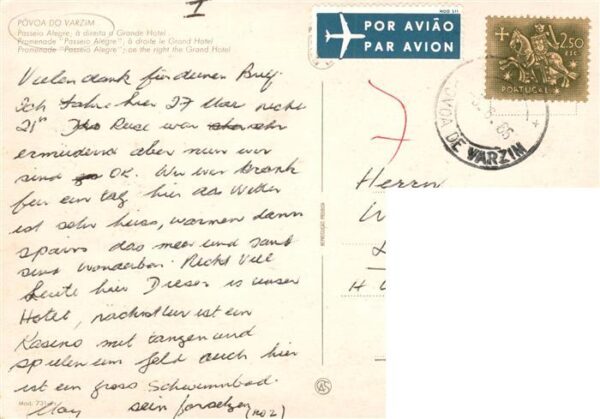 I
PÓVOA DO VARZIM
Passeio Alegre; à direita o Grande Hotel
Promenade "Passeio Alegre"; à droite le Grand Hotel
Promenade "Passeio Alegre"; on the right the Grand Hotel
MOD 511
POR AVIÃO
PAR AVION
2$50
ESC.
PORTUGAL
PÓVOA DE VARZIM
Vielen dank für deinen Brief.
Ich fahre hier 27 nicht
21st Reise war sehr
ermüdend aber nun wir
sind OK. Wir war krank
für ein tag hier das Wetter
ist sehr heiss, warmen dann
spain das meer und sand
sind wonderbar. Recht viele
Leute hier Dieser is unser
Hotel, nachstur ist ein
Kasino mit tanzen und
spielen um geld auch hier
ist ein gross Schwimmbad.
(no 2)
Herrn
H
REPRODUÇÃO PROIBIDA
Mod. 731